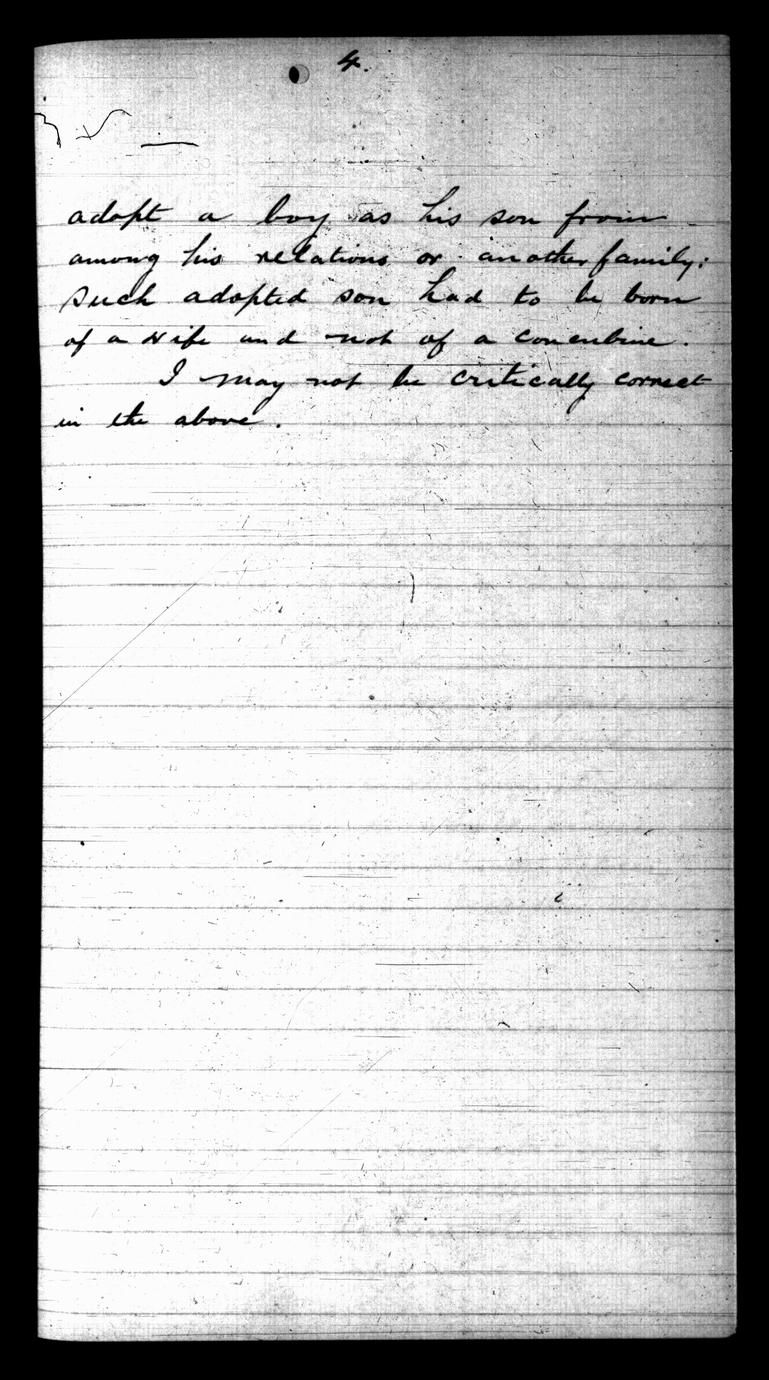 4.
adopt a boy as his son from
among his relations or another family;
such adopted son had to be born
of a wife and not of a concubine.
I may not be critically correct
in the above.